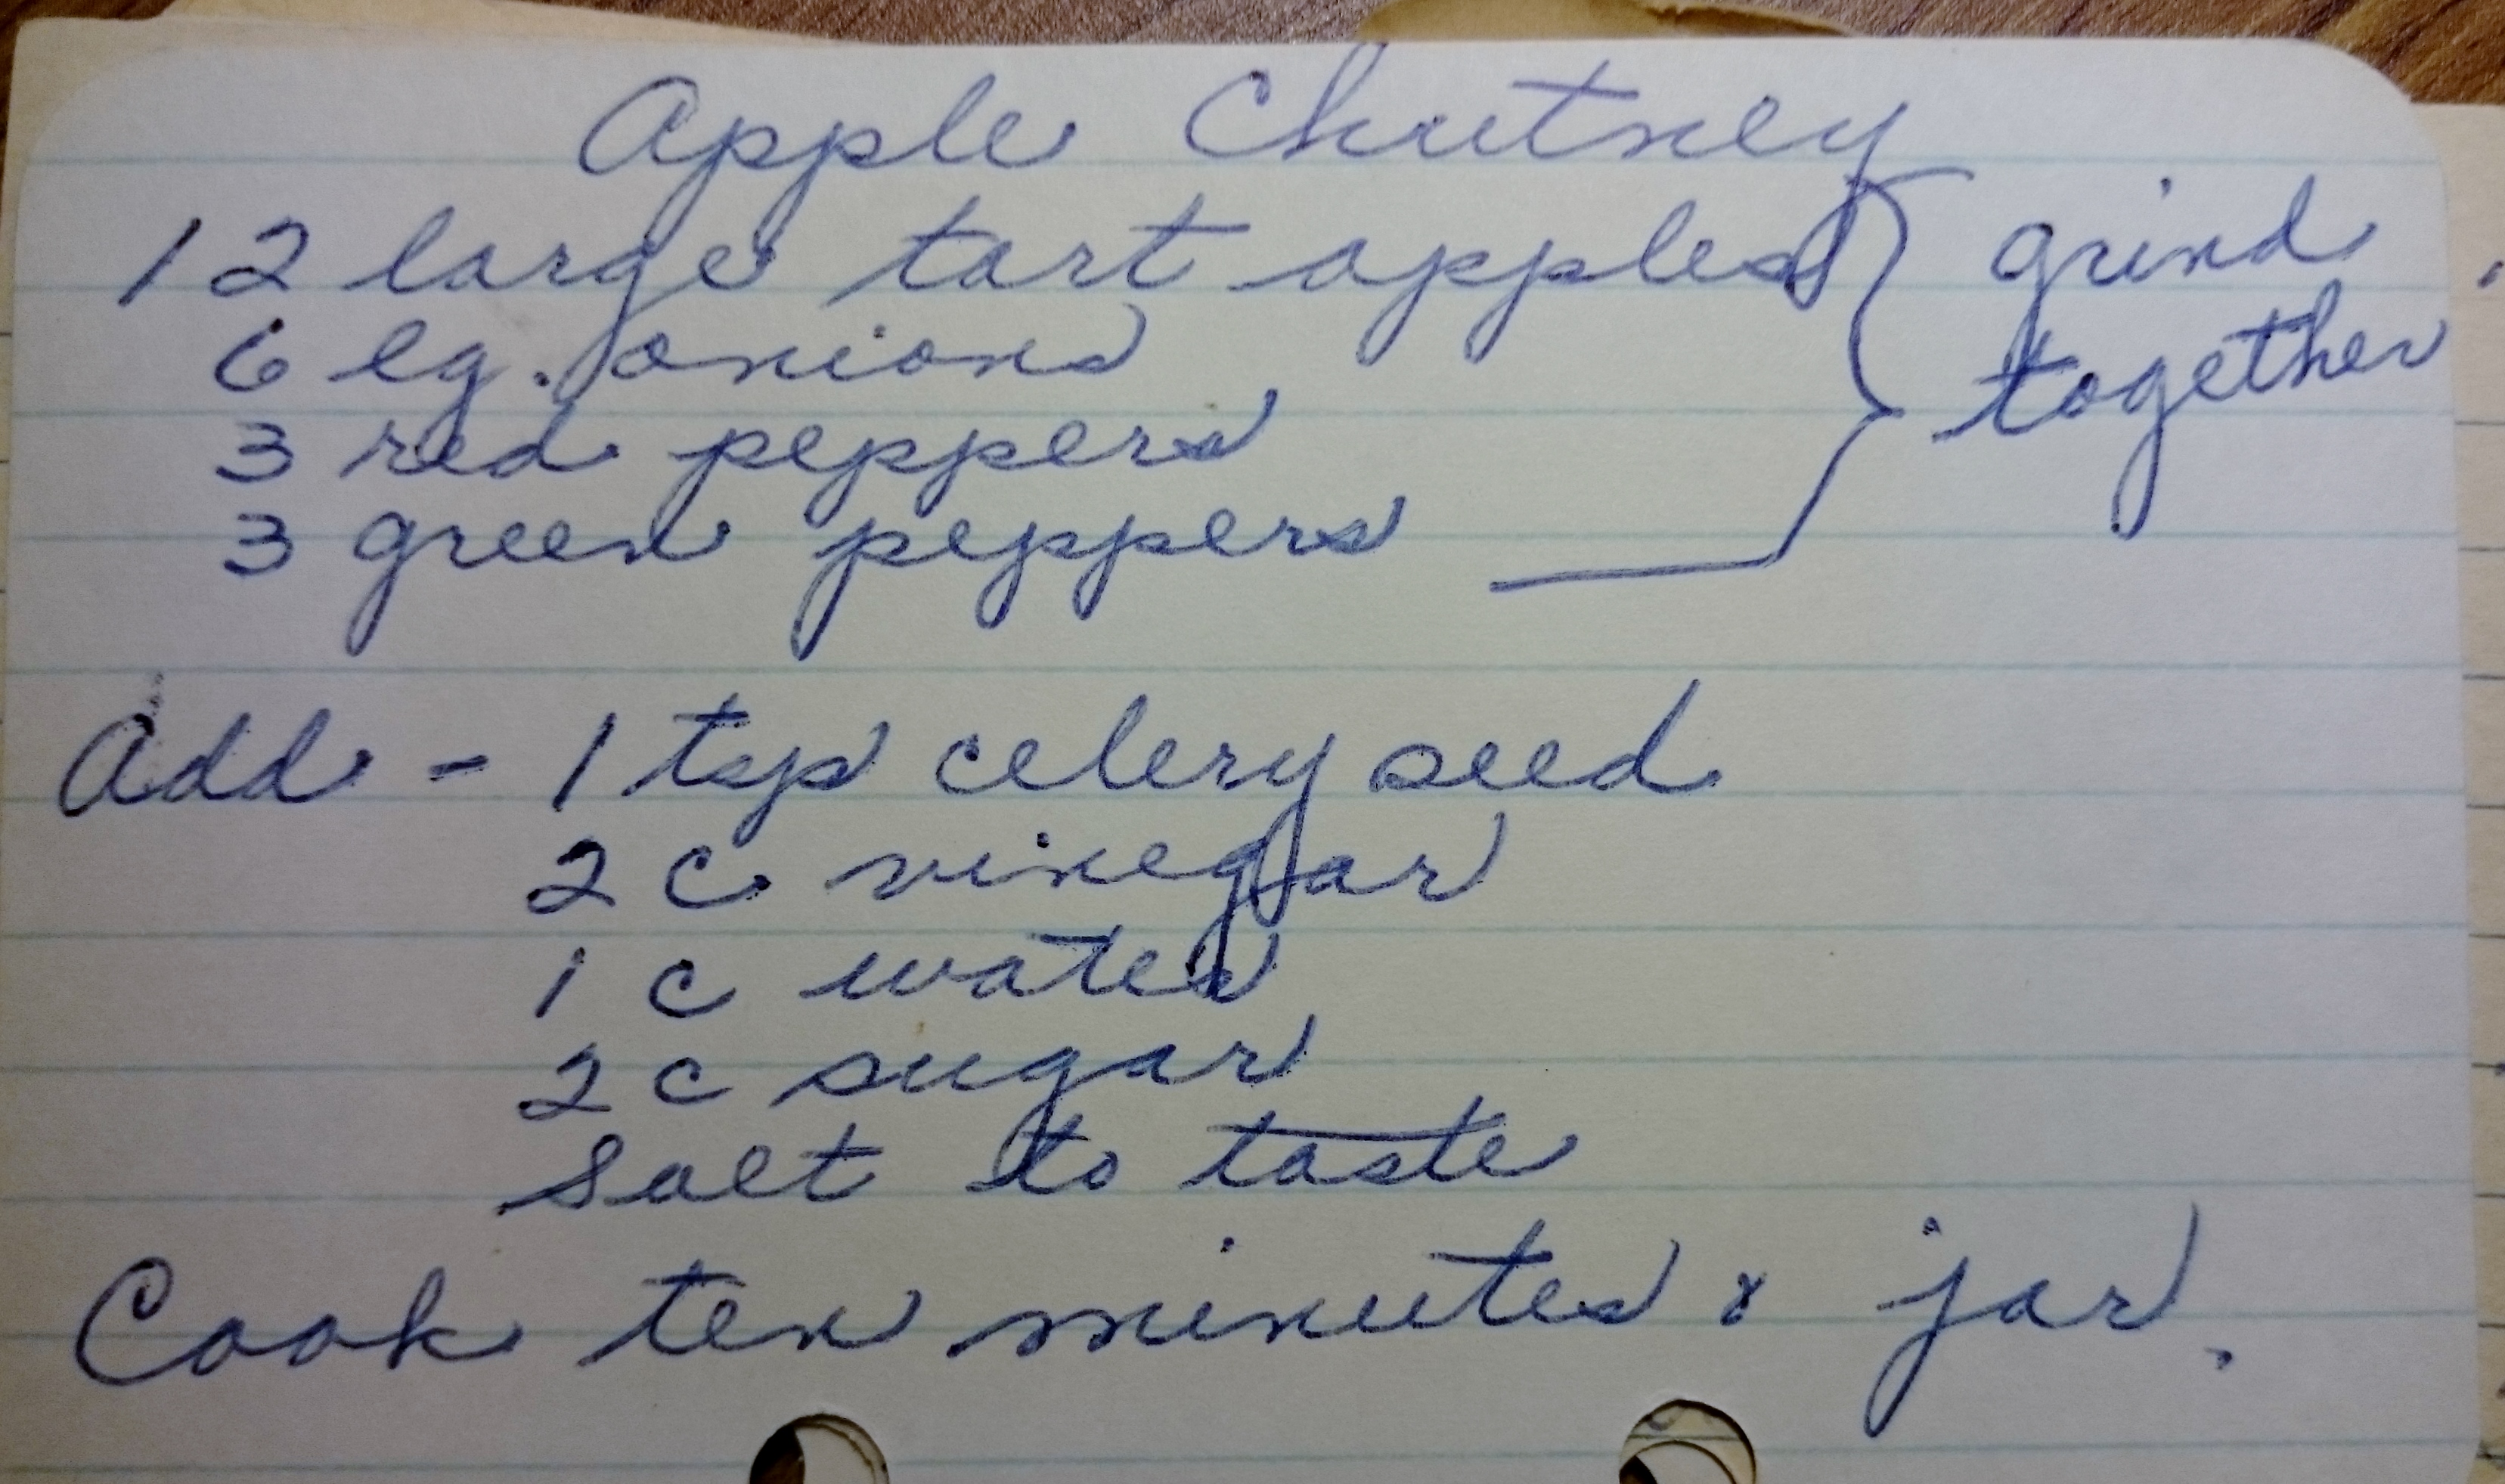 Apple Chutney
12 large tart apples } grind
6 lg. onions together
3 red peppers
3 green peppers
Add - 1 tsp celery seed
2 c vinegar
1 c water
2 c sugar
Salt to taste
Cook ten minutes & jar.